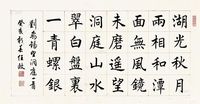 湖光秋月
兩相和潭
面無風鏡
未磨遙望
洞庭山水
翠白銀盤
裏一青螺
劉禹錫望洞庭一首
任政